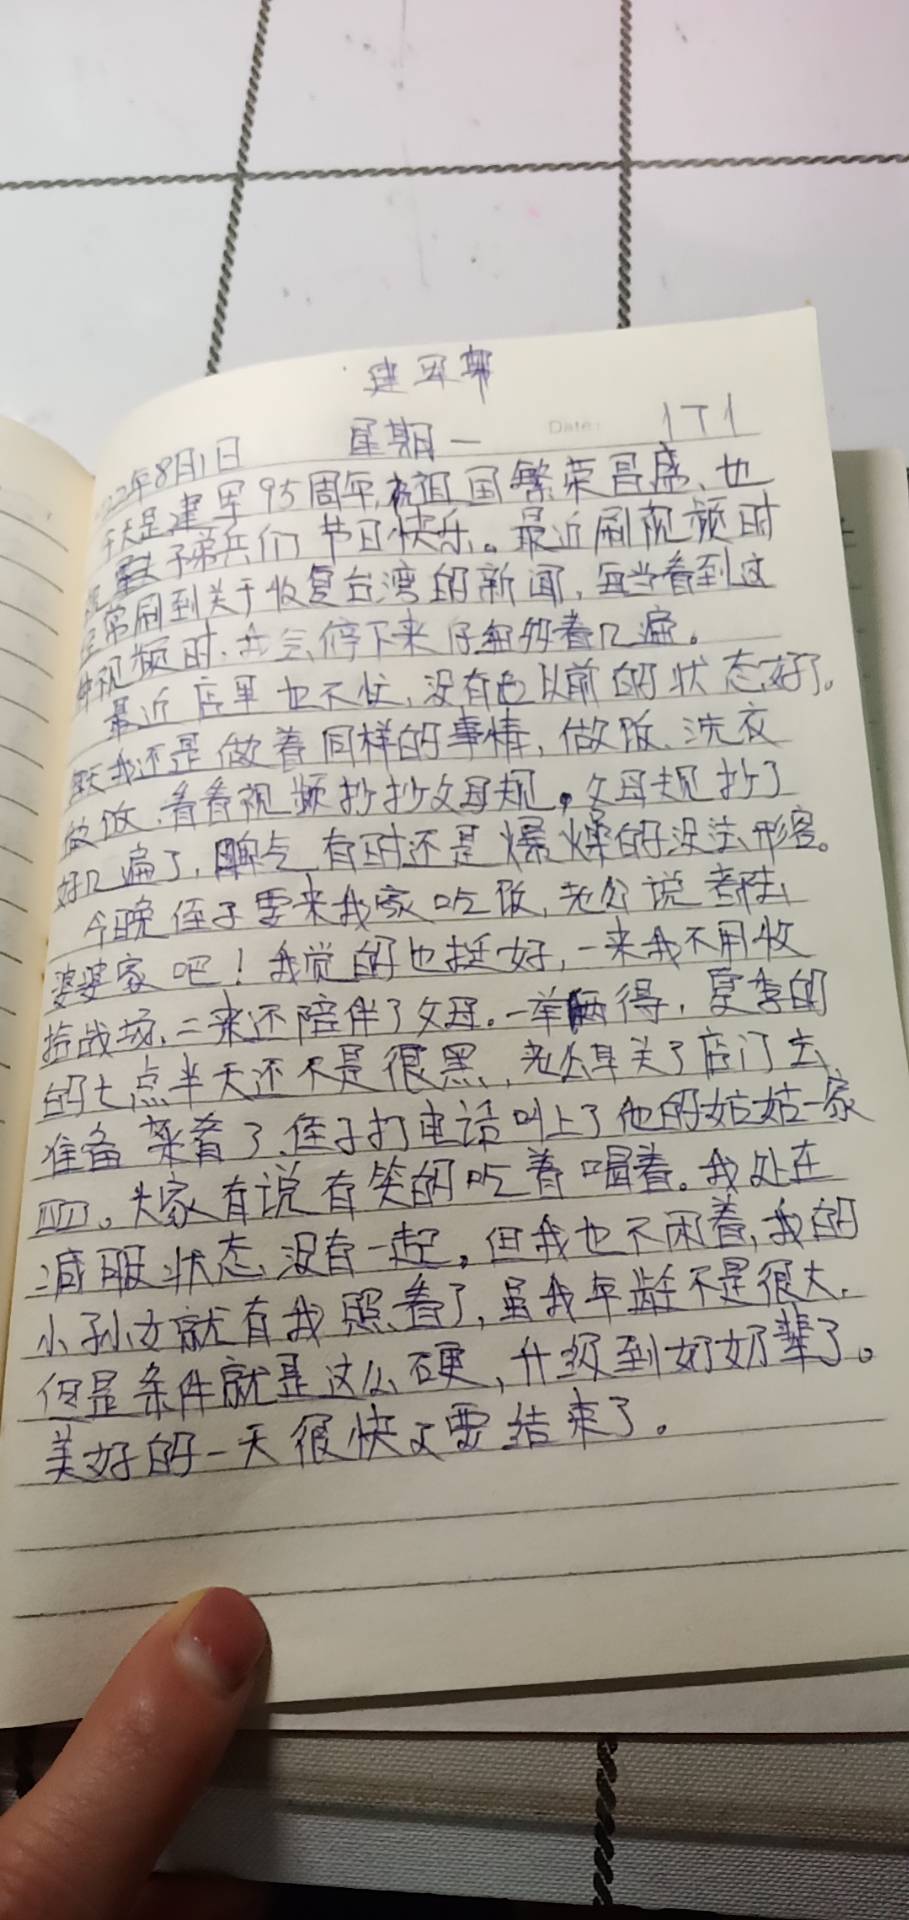 建军节
22年8月1日 星期一 Date: 171
今天是建军95周年,祝祖国繁荣昌盛、也
子弟兵们节日快乐。最近刷视频时
经常刷到关于收复台湾的新闻,每当看到这
种视频时、我会停下来仔细的看几遍。
最近店里也不忙,没有以前的状态好了。
每天我还是做着同样的事情,做饭、洗衣
做饭、看看视频抄抄父母规。父母规抄了
好几遍了,脾气有时还是爆燥的没法形容。
今晚侄子要来我家吃饭,老公说都去
婆婆家吧!我觉的也挺好,一来我不用收
拾战场、二来还陪伴了父母。一举两得,夏季的
的七点半天还不是很黑,老公早关了店门去
准备菜肴了、侄子打电话叫上了他的姑姑一家
四口。大家有说有笑的吃着喝着。我处在
减肥状态、没有一起。但我也不闲着,我的
小孙女就有我照看了,虽我年龄不是很大,
但是条件就是这么硬,升级到奶奶辈了。
美好的一天很快又要结束了。